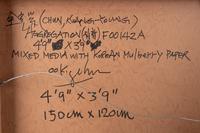 (CHUN, KWANG-YOUNG)
AGGREGATION F00142A
49" X 39"
MIXED MEDIA WITH KOREAN MULBERRY PAPER
4'9" X 3'9"
150cm X 120cm